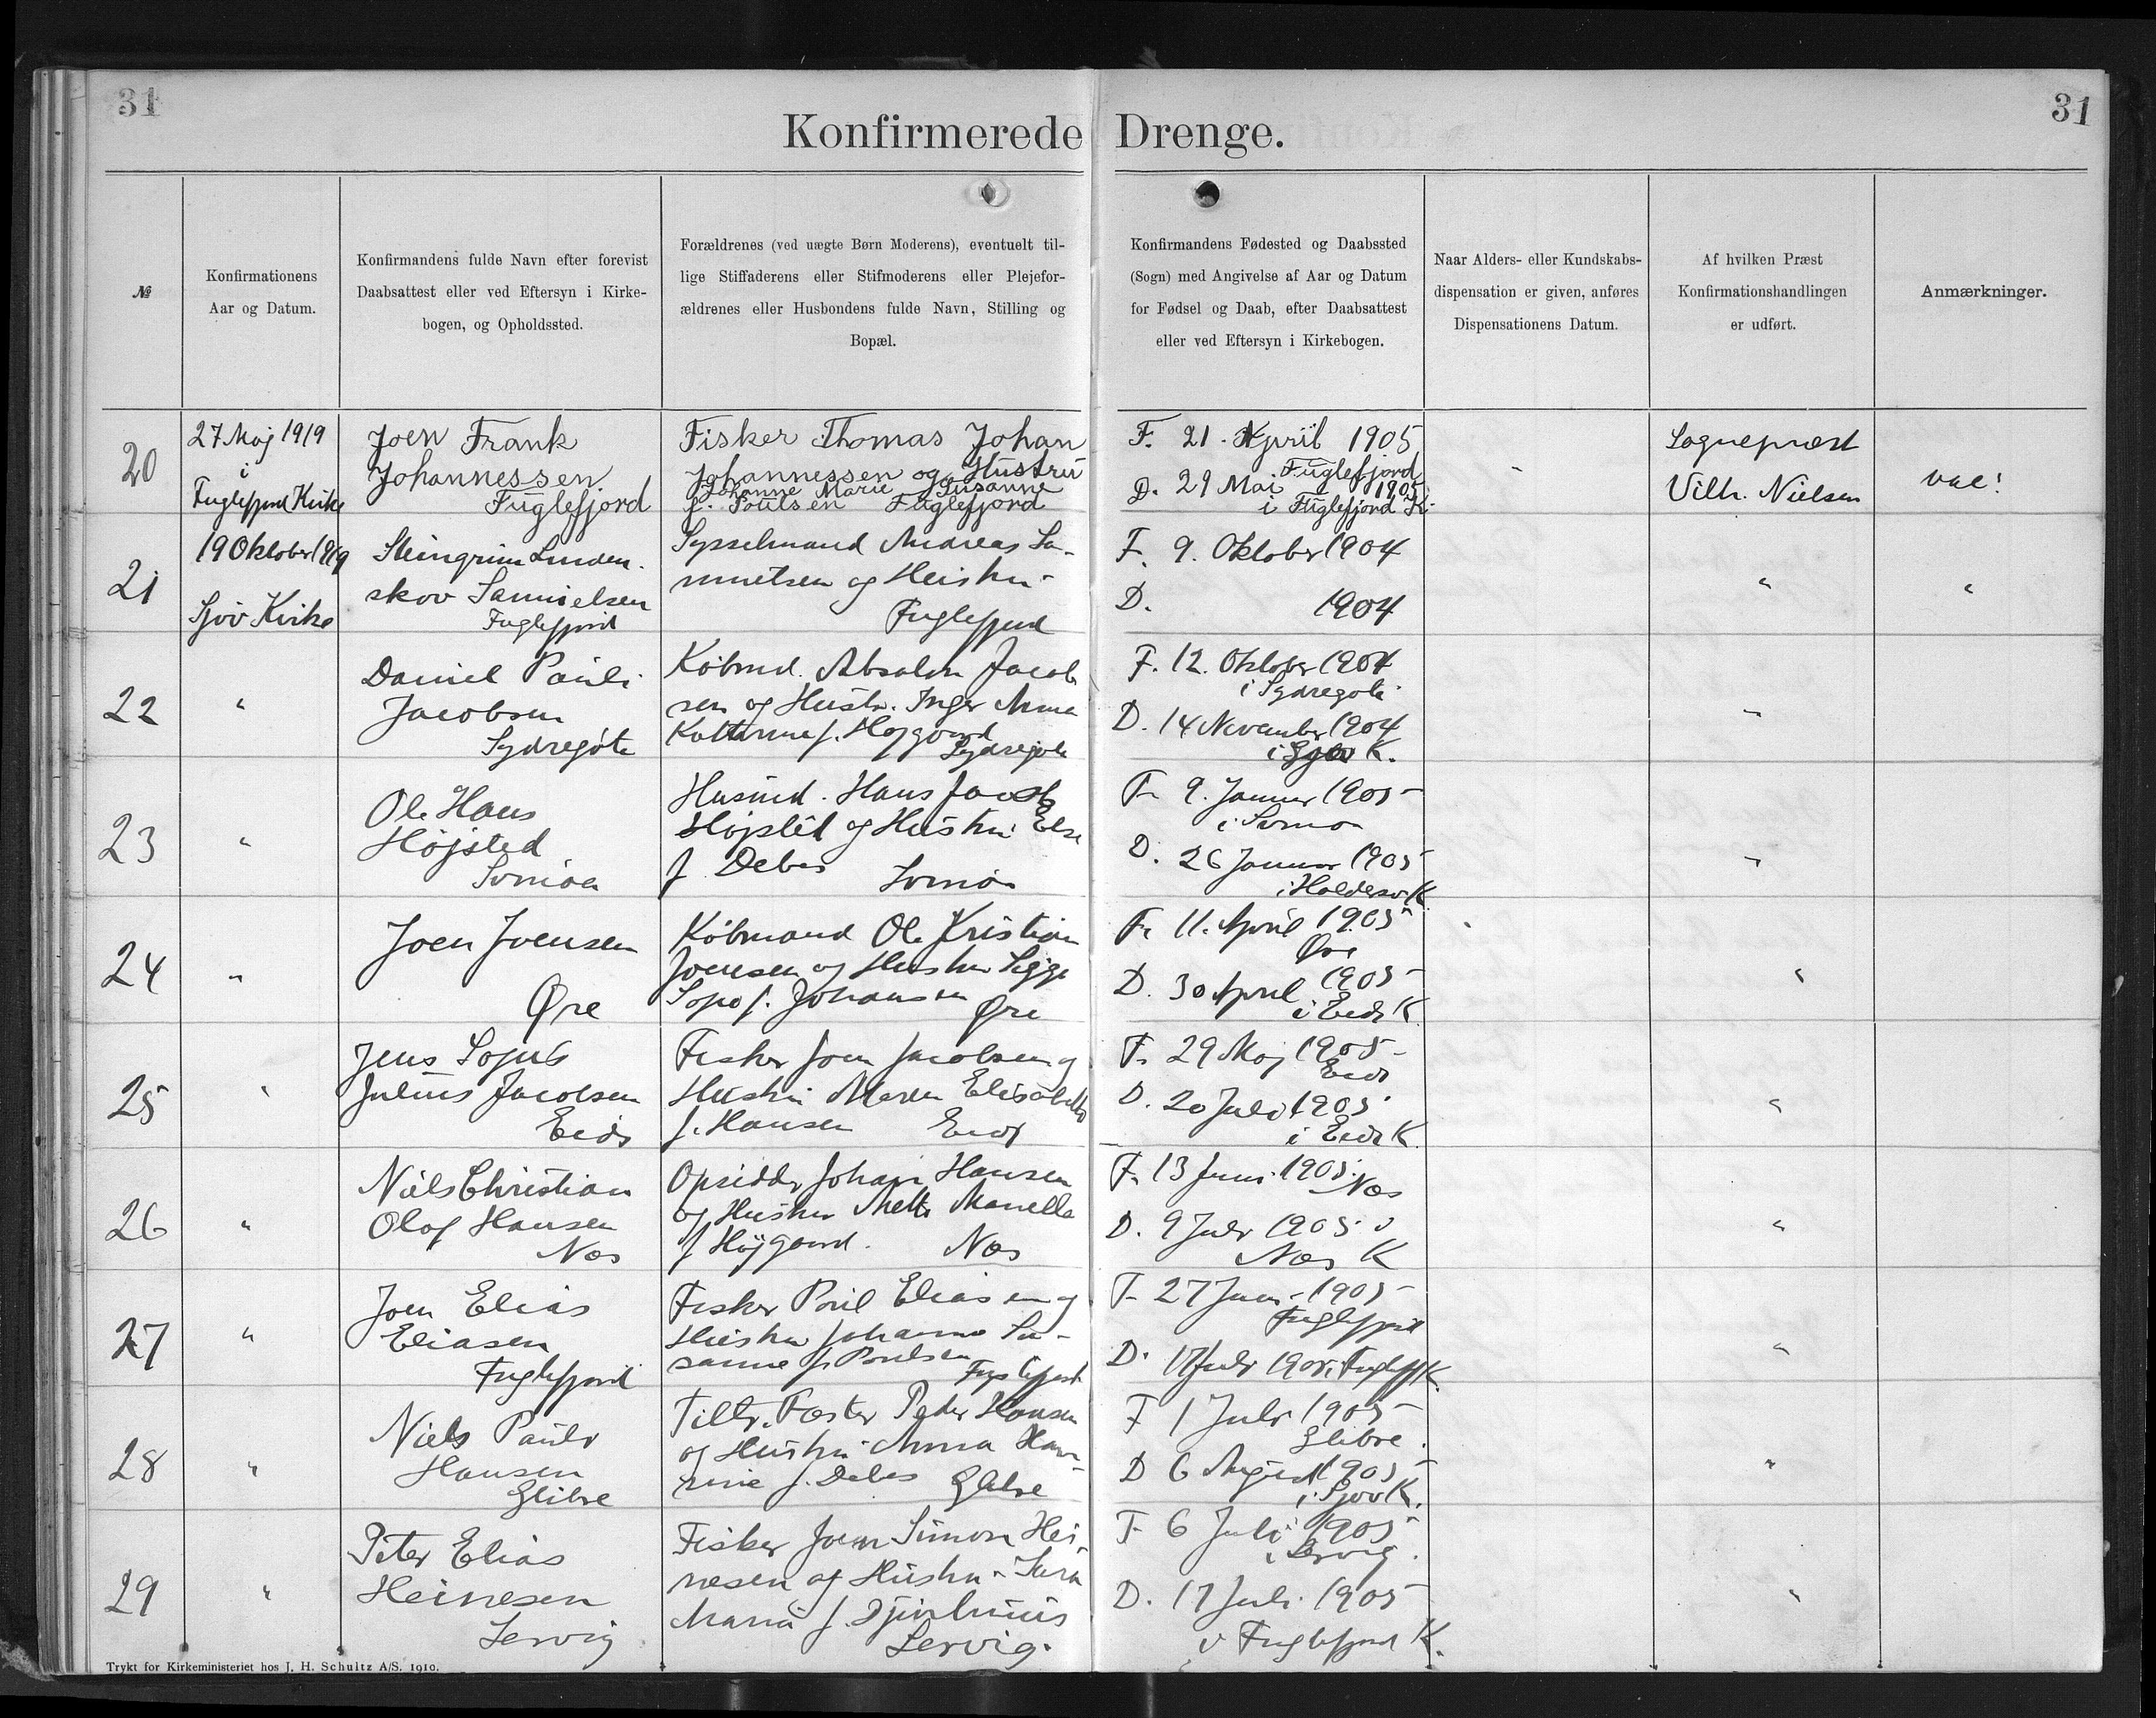 31
31
Konfirmerede Drenge.
№
Konfirmationens
Aar og Datum.
Konfirmandens fulde Navn efter forevist
Daabsattest eller ved Eftersyn i Kirke-
bogen, og Opholdssted.
Forældrenes (ved uægte Børn Moderens), eventuelt til-
lige Stiffaderens eller Stifmoderens eller Plejefor-
ældrenes eller Husbondens fulde Navn, Stilling og
Bopæl.
Konfirmandens Fødested og Daabssted
(Sogn) med Angivelse af Aar og Datum
for Fødsel og Daab, efter Daabsattest
eller ved Eftersyn i Kirkebogen.
Naar Alders- eller Kundskabs-
dispensation er given, anføres
Dispensationens Datum.
Af hvilken Præst
Konfirmationshandlingen
er udført.
Anmærkninger.
20
27 Maj 1919
i
Fuglefjord Kirke
Joen Frank
Johannessen
Fuglefjord
Fisker Thomas Johan
Johannessen og Hustru
Johanne Marie Susanne
f. Poulsen Fuglefjord
F. 21. April 1905
Fuglefjord
D. 29 Mai 1905
i Fuglefjord K.
"
Sognepræst
Vilh. Nielsen
vac!
21
19 Oktober 1919
Sjov Kirke
Steingrim Linden-
skov Samuelsen
Fuglefjord
Sysselmand Andreas Sa-
muelsen og Hustru
Fuglefjord
F. 9. Oktober 1904
D. 1904
"
"
22
"
Daniel Pauli
Jacobsen
Sydregøte
Købmd. Absalon Jacob
sen og Hustr. Inger Anna
Kattrine f. Højgaard
Sydregøte
F. 12. Oktober 1904
i Sydregøte
D. 14 November 1904
i K.
"
23
"
Ole Hans
Højsted
Svinøa
Husmd. Hans Jacob
Højsted og Hustru Else
f Debes Svinøa
F. 9. Januar 1905
i
D. 26 Januar 1905
i Haldersv. K.
"
24
"
Joen Joensen
Øre
Købmand Ole Kristian
Joensen og Hustru Sigge
f. Johansen Øre
F. 11. April 1905
Øre
D. 30 April 1905
i Eide K.
"
25
"
Jens Sofus
Julius Jacobsen
Eide
Fisker Joen Jacobsen og
Hustru Maren Elisabeth
f. Hansen Eide
F. 29 Maj 1905
Eide
D. 20 Juli 1905
i Eide K.
"
26
"
Niels Christian
Olaf Hansen
Næs
Opsidder Johan Hansen
og Hustru Mette
f Højgaard. Næs
F. 13 Juni 1905
Næs
D. 9 Juli 1905 i
Næs K
"
27
"
Joen Elias
Eliasen
Fuglefjord
Fisker Poul Eliasen og
Hustru Johanna Su-
sanne f. Poulsen
Fuglefjord
F. 27 Juni 1905
Fuglefjord
D. 17 Juli 1905 i Fuglefj K.
"
28
"
Niels Pauli
Hansen
Glibre
Tilhr. Fæster Peter Hansen
og Hustru Anna Han-
sine f. Debes Glibre
F 1 Juli 1905
Glibre.
D 6 August 1905
i Sjov K.
"
29
"
Peter Elias
Heinesen
Lervig
Fisker Joen Simon Hei-
nesen og Hustru Sara
Maria f. Djurhuus
Lervig.
F 6 Juli 1905
i Lervig.
D. 17 Juli 1905
i Fuglefjord K.
"
Trykt for Kirkeministeriet hos J. H. Schultz A/S. 1910.